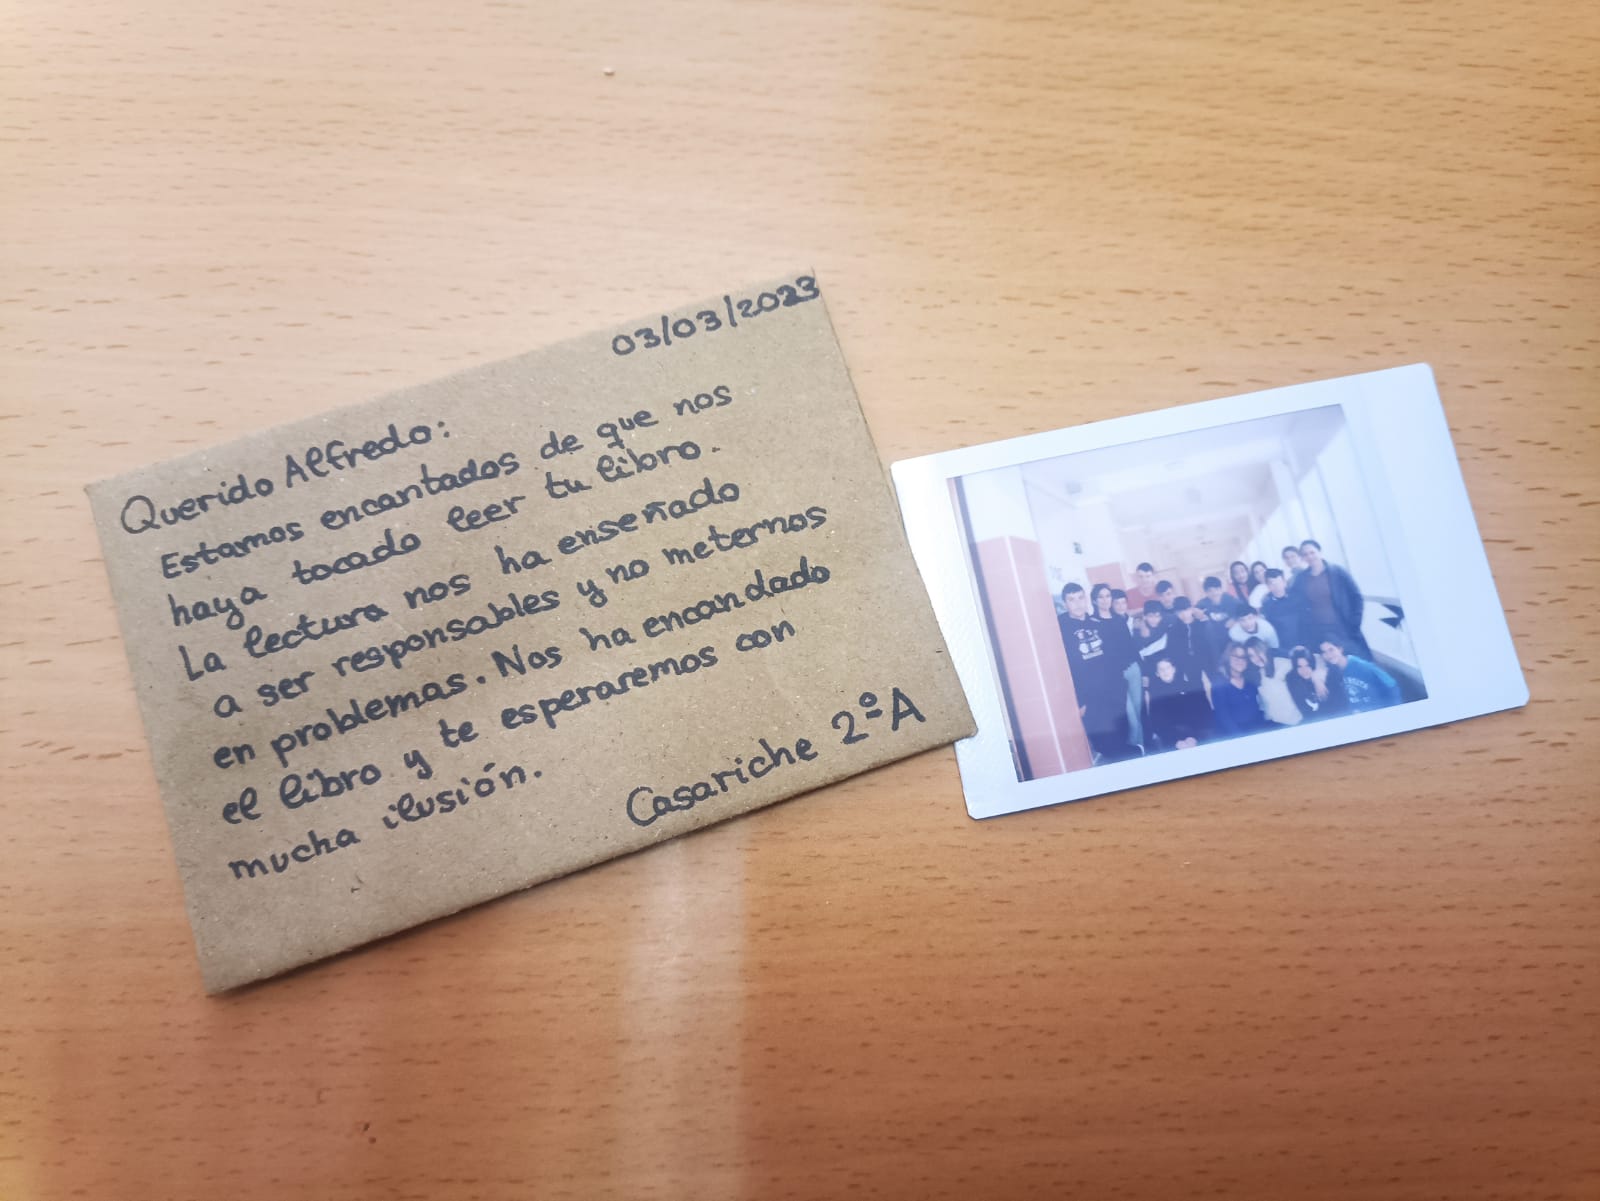 03/03/2023
Querido Alfredo:
Estamos encantados de que nos
haya tocado leer tu libro.
La lectura nos ha enseñado
a ser responsables y no meternos
en problemas. Nos ha encandado
el libro y te esperaremos con
mucha ilusión.
Casariche 2ºA